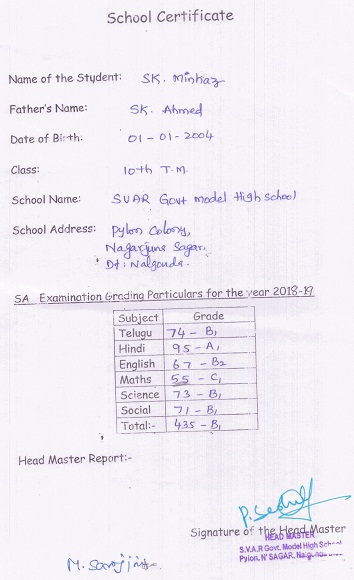 School Certificate
Name of the Student: SK. Minhaz
Father's Name: SK. Ahmed
Date of Birth: 01-01-2004
Class: 10th T.M.
School Name: SVAR Govt model High school
School Address: Pylon Colony,
Nagarjuna Sagar.
Dt: Nalgonda.
SA Examination Grading Particulars for the year 2018-19
Subject Grade
Telugu 74 - B1
Hindi 95 - A1
English 67 - B2
Maths 55 - C1
Science 73 - B1
Social 71 - B1
Total:- 435 - B1
Head Master Report:-
Signature of the Head Master
HEAD MASTER
S.V.A.R Govt. Model High School
Pylon, N' SAGAR, Nalgonda
M. Sarojini